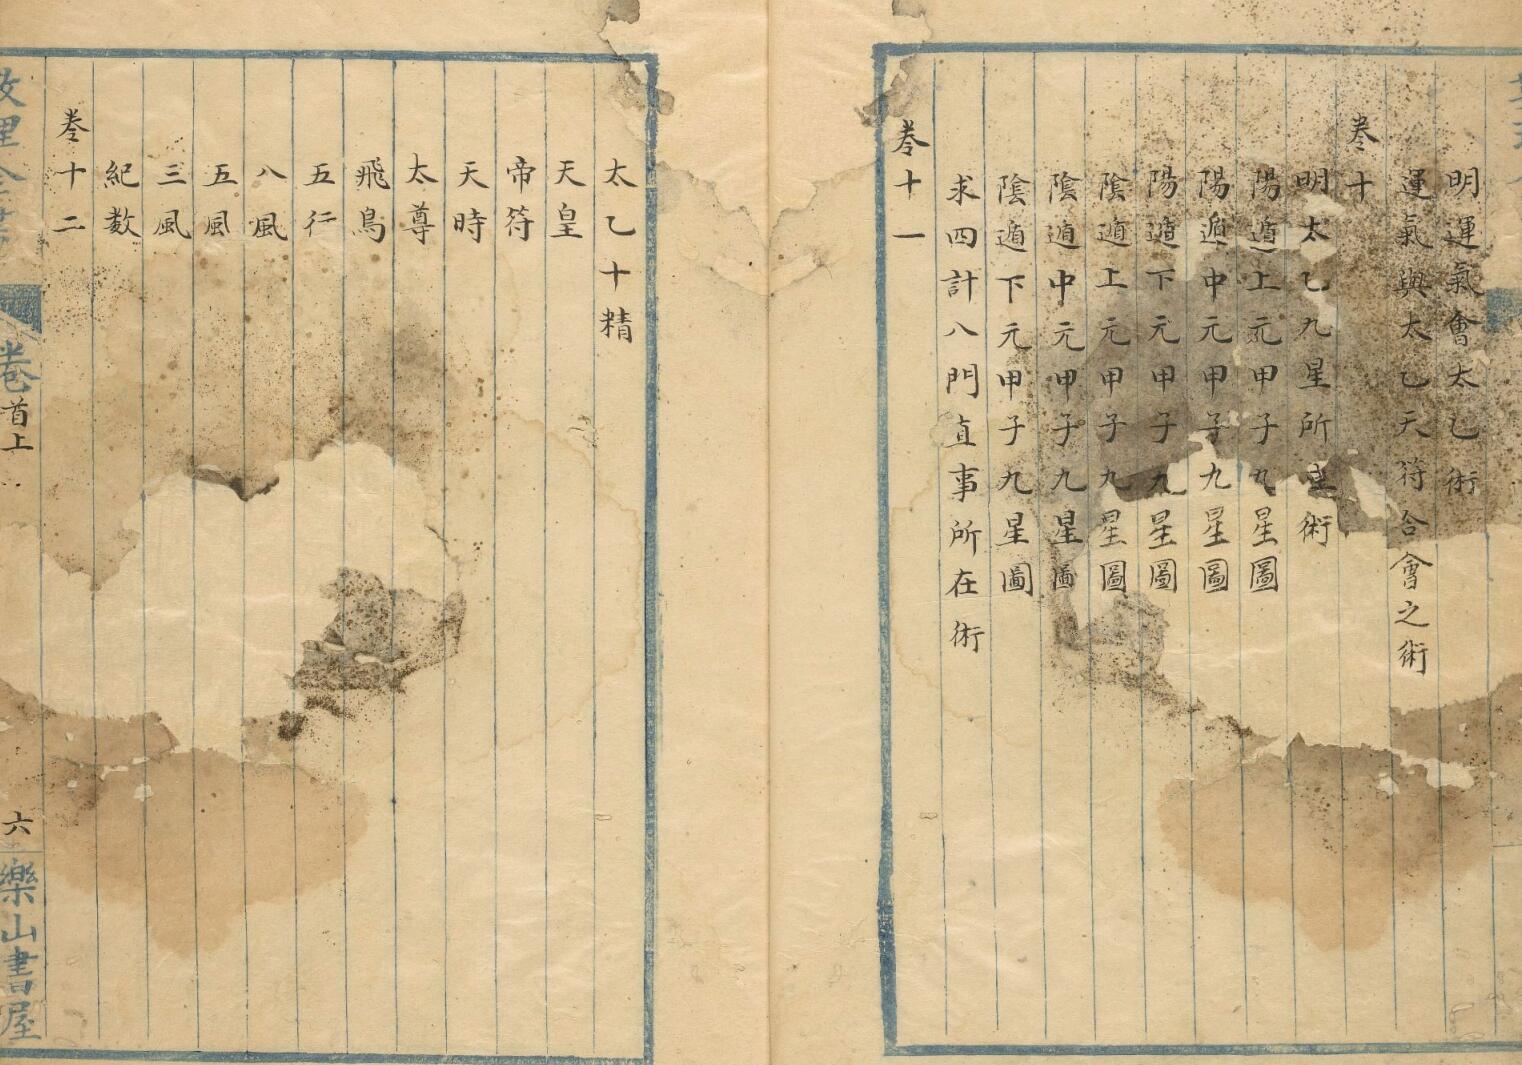 明運氣會太乙術
運氣與太乙天符合會之術
卷十
明太乙九星所主術
陽遁上元甲子九星圖
陽遁中元甲子九星圖
陽遁下元甲子九星圖
陰遁上元甲子九星圖
陰遁中元甲子九星圖
陰遁下元甲子九星圖
求四計八門直事所在術
卷十一
太乙十精
天皇
帝符
天時
太尊
飛鳥
五行
八風
五風
三風
紀数
卷十二
卷首上
六
樂山書屋